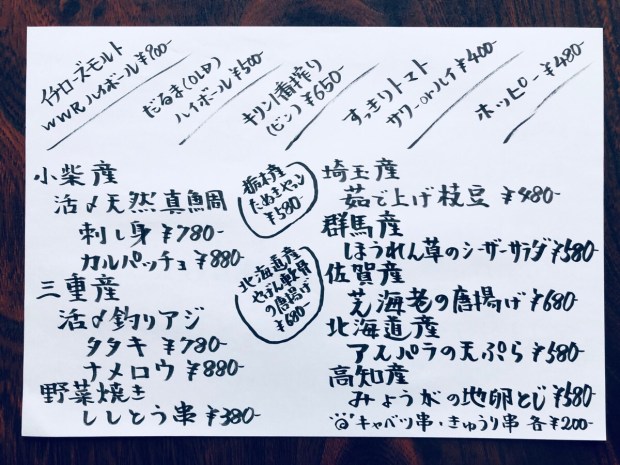 イチローズモルト
WWRハイボール¥800-
だるま(OLD)
ハイボール¥500-
キリン一番搾り
(ビン)¥650-
すっきりトマト
サワーorハイ¥400-
ホッピー¥480-
小柴産
活〆天然真鯛
刺し身¥780-
カルパッチョ¥880-
三重産
活〆釣りアジ
タタキ¥780-
ナメロウ¥880-
野菜焼き
ししとう串¥380-
栃木産
¥580-
北海道産
やげん軟骨
の唐揚げ
¥680-
埼玉産
茹で上げ枝豆¥480-
群馬産
ほうれん草のシーザーサラダ¥580-
佐賀産
芝海老の唐揚げ¥680-
北海道産
アスパラの天ぷら¥580-
高知産
みょうがの地卵とじ¥580-
キャベツ串・きゅうり串 各¥200-